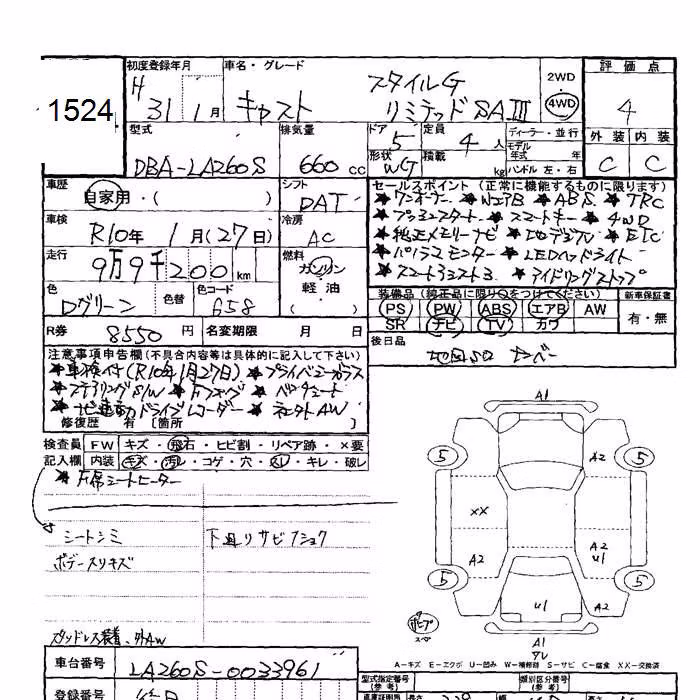 初度登録年月 車名・グレード 評価点
1524 H 31 1月 キャスト スタイルG リミテッド SAIII 2WD 4WD 4
型式 排気量 ドア 5 定員 4人 ディーラー・並行 外装 内装
DBA-LA260S 660cc 形状 WG 積載 kg モデル年式 年式 ハンドル 左・右 C C
車歴 自家用・( ) シフト DAT セールスポイント (正常に機能するものに限ります)
★ワンオーナー ★WエアB ★ABS ★TRC
車検 R10年 1月(27日) 冷房 AC ★プッシュスタート ★スマートキー ★4WD
★純正メモリーナビ ★地デジTV ★ETC
走行 9万9千200km 燃料 ガソリン 軽油 ( ) ★パノラマモニター ★LEDヘッドライト
★スマートアシスト3 ★アイドリングストップ
色 Dグリーン 色替 色コード 658 装備品 (純正品に限り○をつけてください) 新車保証書
PS PW ABS エアB AW 有・無
SR ナビ TV カワ
R券 8550円 名変期限 月 日 後日品
注意事項申告欄(不具合内容等は具体的に記入して下さい)
★車検付(R10年1月27日) ★プライベシーガラス
★ステアリングS/W ★Fフォグ ★ベンチシート
★ナビ連動ドライブレコーダー ★社外AW
修復歴 有 [箇所 ]
検査員 FW キズ・飛石・ヒビ割・リペア跡・×要
記入欄 内装 キズ・汚れ・コゲ・穴・スレ・キレ・破レ
★F席シートヒーター
シートシミ 下廻りサビフショク
ボデースリキズ
スタッドレス装着、外AW
A1
5 A2 5
XX
A2 A2 U1
5 5
U1 A2
A1
A-キズ E-エクボ U-凹み W-補修跡 S-サビ C-腐食 XX-交換済
車台番号 LA260S-0033961 型式指定番号 (参考) 類別区分番号 (参考)
登録番号